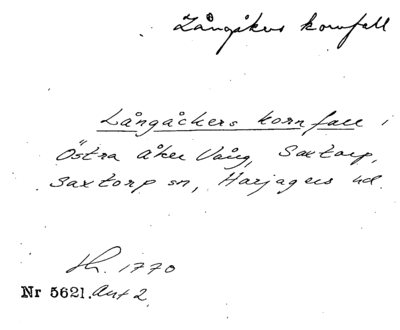 Långåkers kornfall
Långåckers kornfall i
Östra åker Vång, Saxtorp,
Saxtorp sn, Harjagers hd.
Sk. 1770
Nr 5621. Ant 2.